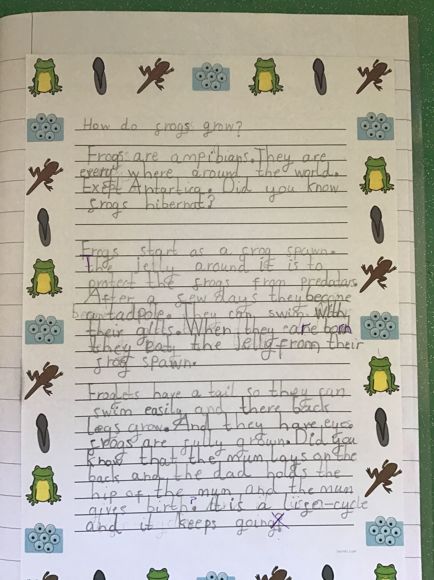 How do frogs grow?
Frogs are ampibians. They are
every where around the world.
Exept Antartica. Did you know
frogs hibernat?
Frogs start as a frog spawn.
The jelly around it is to
protect the frogs from predators.
After a few days they become
tadpole. They can swim with
their gills. When they are born
they eat the Jelly from their
frog spawn.
Froglets have a tail so they can
swim easily and there back
legs grow. And they have eyes.
are fully grown. Did you
know that the mum lays on the
back and the dad holds the
hip of the mum and the mum
gives birth. It is a cycle
and it keeps going